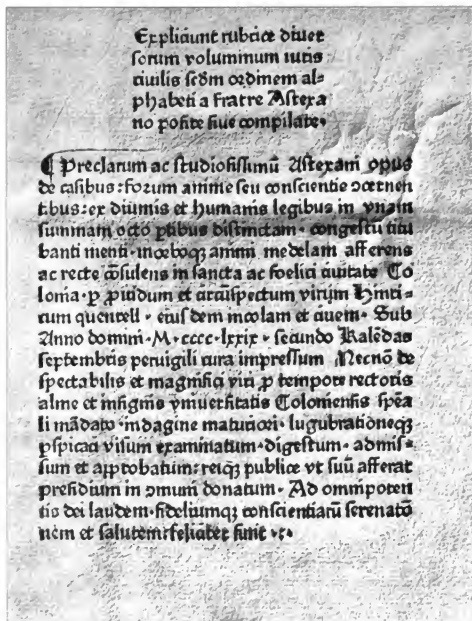 Expliciunt rubrice diuer
sorum voluminum iuris
ciuilis scđm ordinem al⸗
phabeti a fratre Astexa
no posite siue compilate·
¶ Preclarum ac studiosissimū Astexani opus
de casibus: forum anime seu conscientie ↄcernen
tibus: ex diuinis et humanis legibus in vnam
summam octo ꝑtibus distinctam· congestū titu
banti menti· mceboqꝫ animi medelam afferens
ac recte cōsulens in sancta ac foelici ciuitate Co
lonia· ꝑ ꝓuidum et circūspectum virum Hinri⸗
cum quentell· eiusdem incolam et ciuem· Sub
Anno domini· M· cccc· lxxix· secundo Kalēdas
septembris peruigili cura impressum Necnō de
spectabilis et magnifici viri ꝓ tempore rectoris
alme et insignis vniuersitatis Coloniensis spēa
li mādato· indagine maturiori· lugubrationeqꝫ
ꝑspicaci visum examinatum· digestum· admis⸗
sum et approbatum: reiqꝫ publice vt suū afferat
presidium in ↄmuni donatum· Ad omnipoten
tis dei laudem· fideliumqꝫ conscientiarū serenatō
nem et salutem: feliciter finit